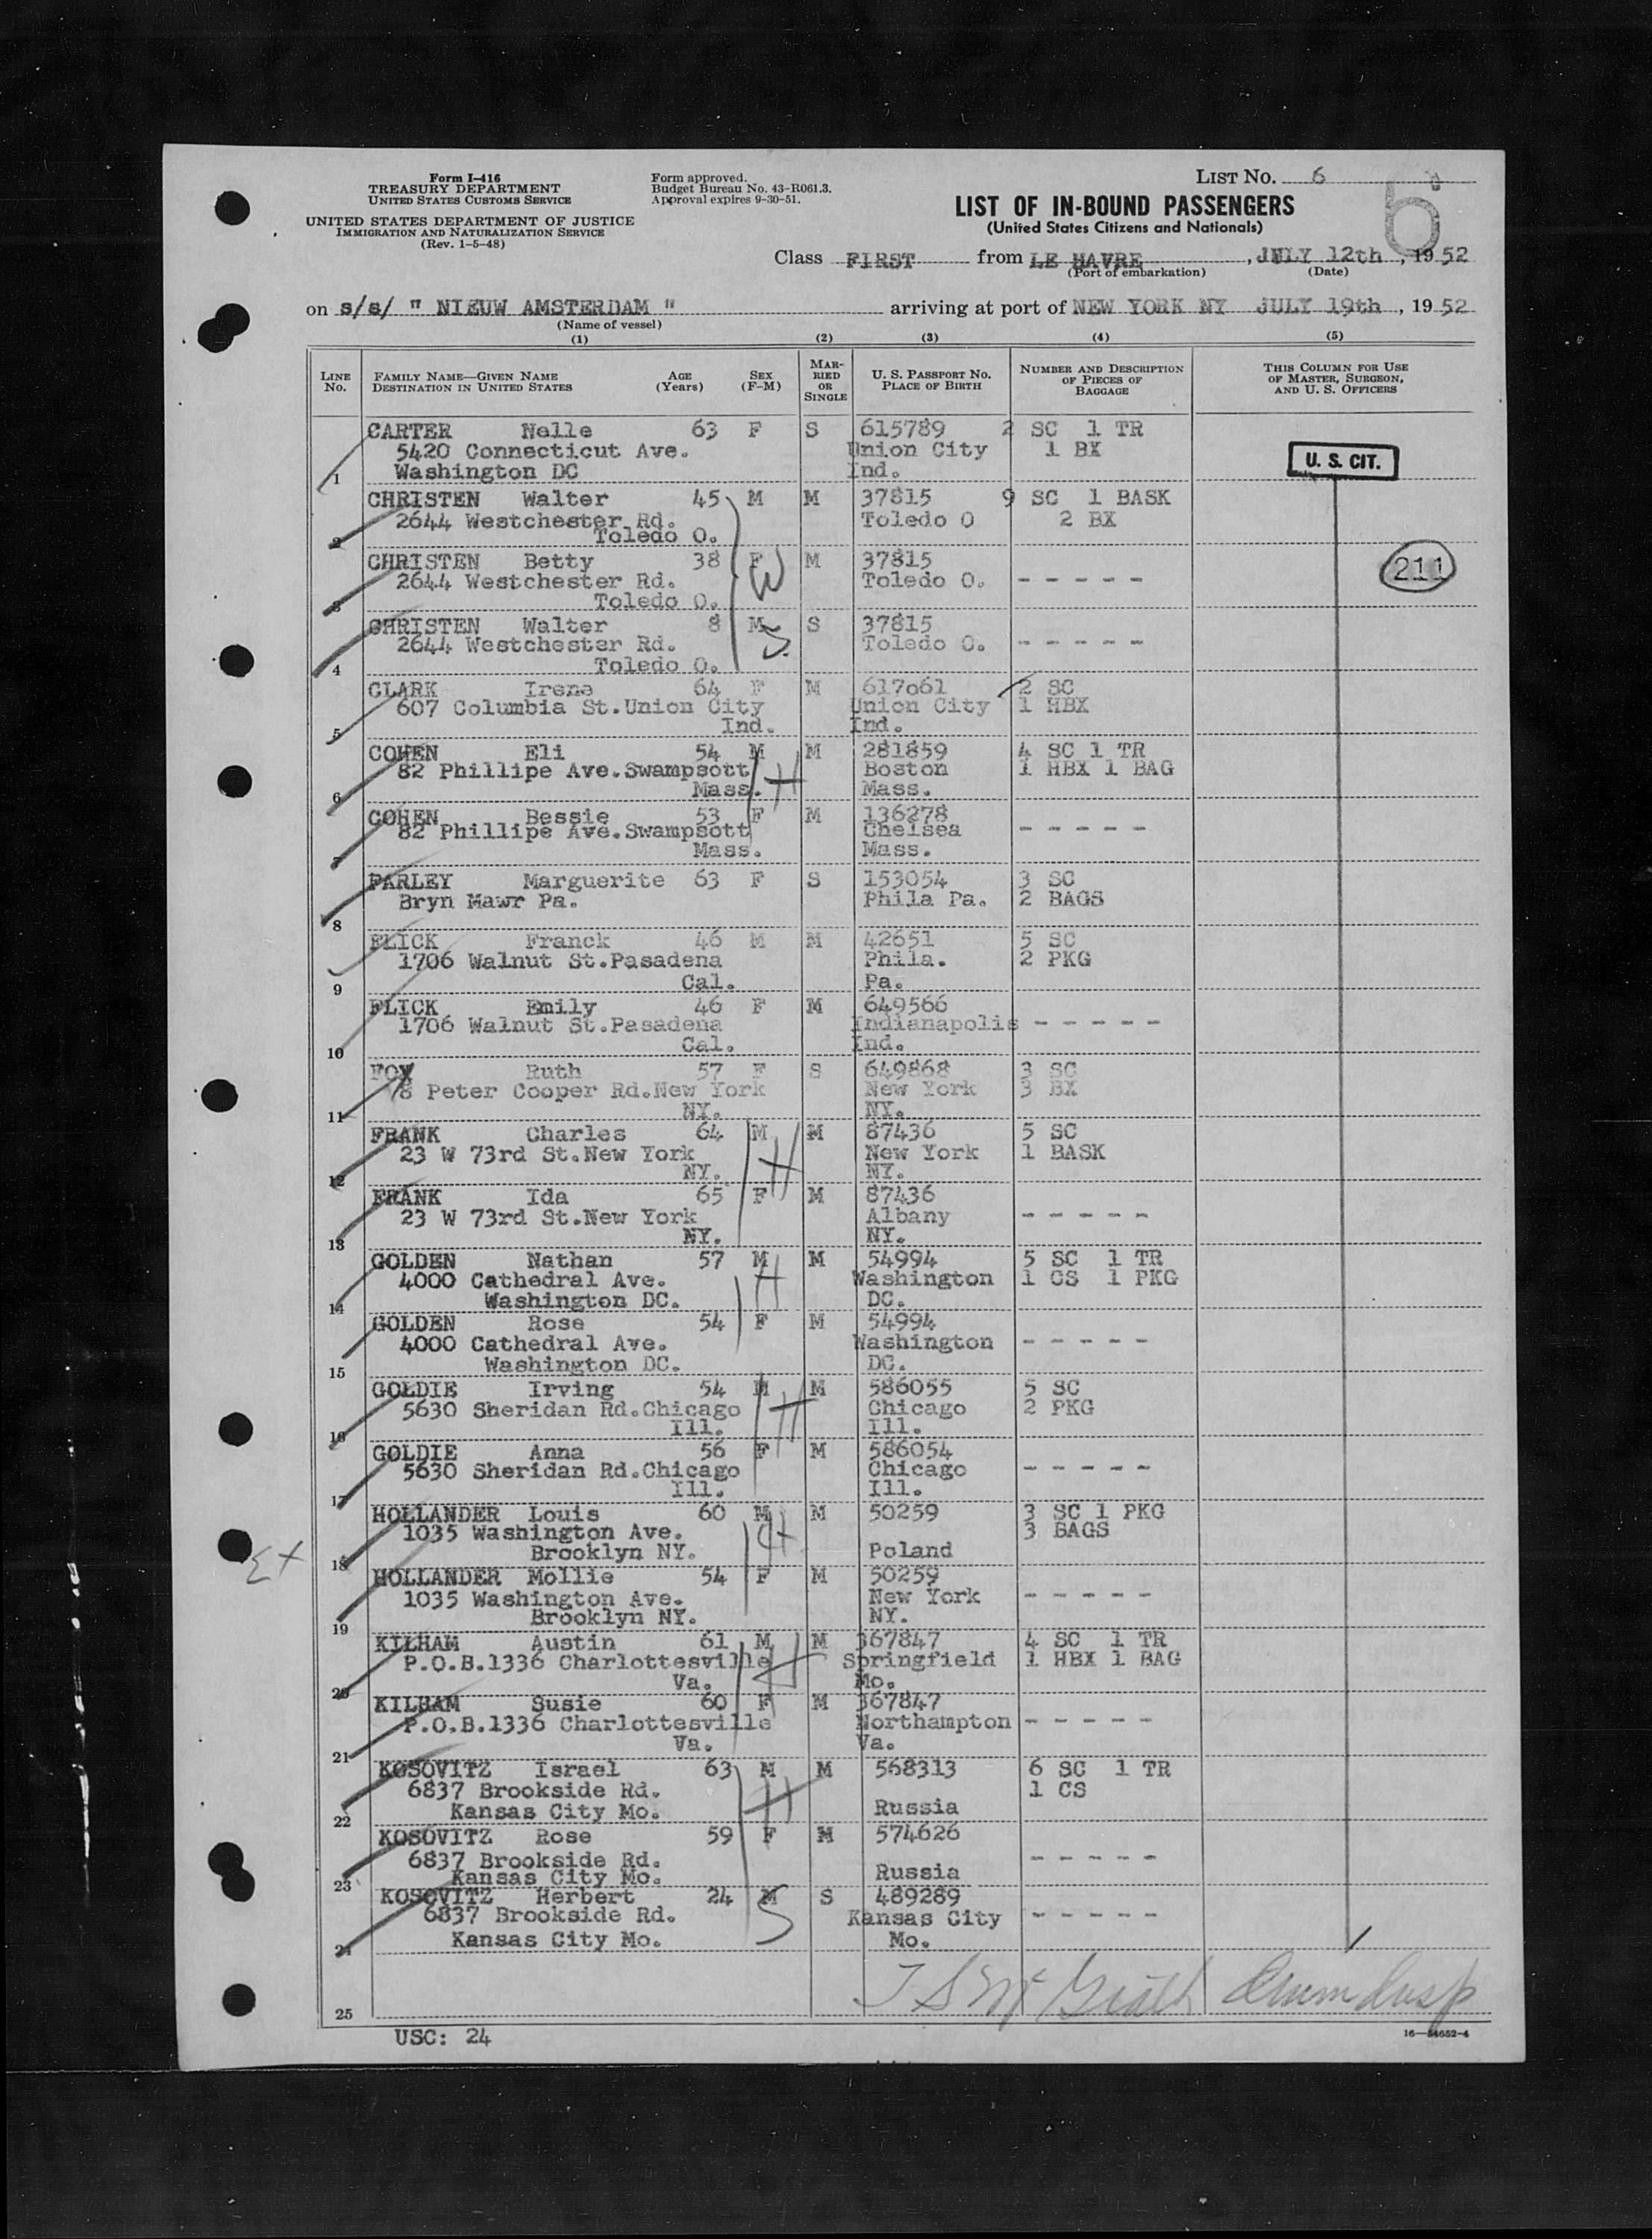 Form I-416
TREASURY DEPARTMENT
UNITED STATES CUSTOMS SERVICE
UNITED STATES DEPARTMENT OF JUSTICE
IMMIGRATION AND NATURALIZATION SERVICE
(Rev. 1-5-48)
Form approved.
Budget Bureau No. 43-R061.3.
Approval expires 9-30-51.
LIST NO. 6
6
LIST OF IN-BOUND PASSENGERS
(United States Citizens and Nationals)
Class FIRST from LE HAVRE, JULY 12th, 1952
(Port of embarkation) (Date)
on s/s/ " NIEUW AMSTERDAM " arriving at port of NEW YORK NY JULY 19th, 1952
(Name of vessel)
(1) (2) (3) (4) (5)
LINE No.
FAMILY NAME—GIVEN NAME
DESTINATION IN UNITED STATES
AGE (Years)
SEX (F-M)
MARRIED OR SINGLE
U. S. PASSPORT NO.
PLACE OF BIRTH
NUMBER AND DESCRIPTION OF PIECES OF BAGGAGE
THIS COLUMN FOR USE OF MASTER, SURGEON, AND U. S. OFFICERS
CARTER Nelle 63 F S 615789 2 SC 1 TR
5420 Connecticut Ave. Union City 1 BX
1 Washington DC Ind.
U. S. CIT.
CHRISTEN Walter 45 M M 37815 9 SC 1 BASK
2644 Westchester Rd. Toledo O 2 BX
2 Toledo O.
CHRISTEN Betty 38 F M 37815
2644 Westchester Rd. Toledo O. - - - - -
3 Toledo O.
W
211
CHRISTEN Walter 8 M S 37815
2644 Westchester Rd. Toledo O. - - - - -
4 Toledo O.
S
CLARK Irene 64 F M 617061 2 SC
607 Columbia St.Union City Union City 1 HBX
5 Ind. Ind.
COHEN Eli 54 M M 281859 4 SC 1 TR
82 Phillipe Ave.Swampsott Boston 1 HBX 1 BAG
6 Mass. Mass.
H
COHEN Bessie 53 F M 136278
82 Phillipe Ave.Swampsott Chelsea - - - - -
7 Mass. Mass.
FARLEY Marguerite 63 F S 153054 3 SC
Bryn Mawr Pa. Phila Pa. 2 BAGS
8
FLICK Franck 46 M M 42651 5 SC
1706 Walnut St.Pasadena Phila. 2 PKG
9 Cal. Pa.
FLICK Emily 46 F M 649566
1706 Walnut St.Pasadena Indianapolis - - - - -
10 Cal. Ind.
FOX Ruth 57 F S 649868 3 SC
8 Peter Cooper Rd.New York New York 3 BX
11 NY. NY.
FRANK Charles 64 M M 87436 5 SC
23 W 73rd St.New York New York 1 BASK
12 NY. NY.
H
FRANK Ida 65 F M 87436
23 W 73rd St.New York Albany - - - - -
13 NY. NY.
GOLDEN Nathan 57 M M 54994 5 SC 1 TR
4000 Cathedral Ave. Washington 1 CS 1 PKG
14 Washington DC. DC.
H
GOLDEN Rose 54 F M 54994
4000 Cathedral Ave. Washington - - - - -
15 Washington DC. DC.
GOLDIE Irving 54 M M 586055 5 SC
5630 Sheridan Rd.Chicago Chicago 2 PKG
16 Ill. Ill.
H
GOLDIE Anna 56 F M 586054
5630 Sheridan Rd.Chicago Chicago - - - - -
17 Ill. Ill.
HOLLANDER Louis 60 M M 50259 3 SC 1 PKG
1035 Washington Ave. 3 BAGS
18 Brooklyn NY. Poland
H
HOLLANDER Mollie 54 F M 50259
1035 Washington Ave. New York - - - - -
19 Brooklyn NY. NY.
KILHAM Austin 61 M M 367847 4 SC 1 TR
P.O.B.1336 Charlottesville Springfield 1 HBX 1 BAG
20 Va. Mo.
H
KILHAM Susie 60 F M 367847
P.O.B.1336 Charlottesville Northampton - - - - -
21 Va. Va.
KOSOVITZ Israel 63 M M 568313 6 SC 1 TR
6837 Brookside Rd. 1 CS
22 Kansas City Mo. Russia
H
KOSOVITZ Rose 59 F M 574626
6837 Brookside Rd. - - - - -
23 Kansas City Mo. Russia
KOSOVITZ Herbert 24 M S 489289
6837 Brookside Rd. Kansas City - - - - -
24 Kansas City Mo. Mo.
S
25 McGrath
USC: 24
16—54652-4